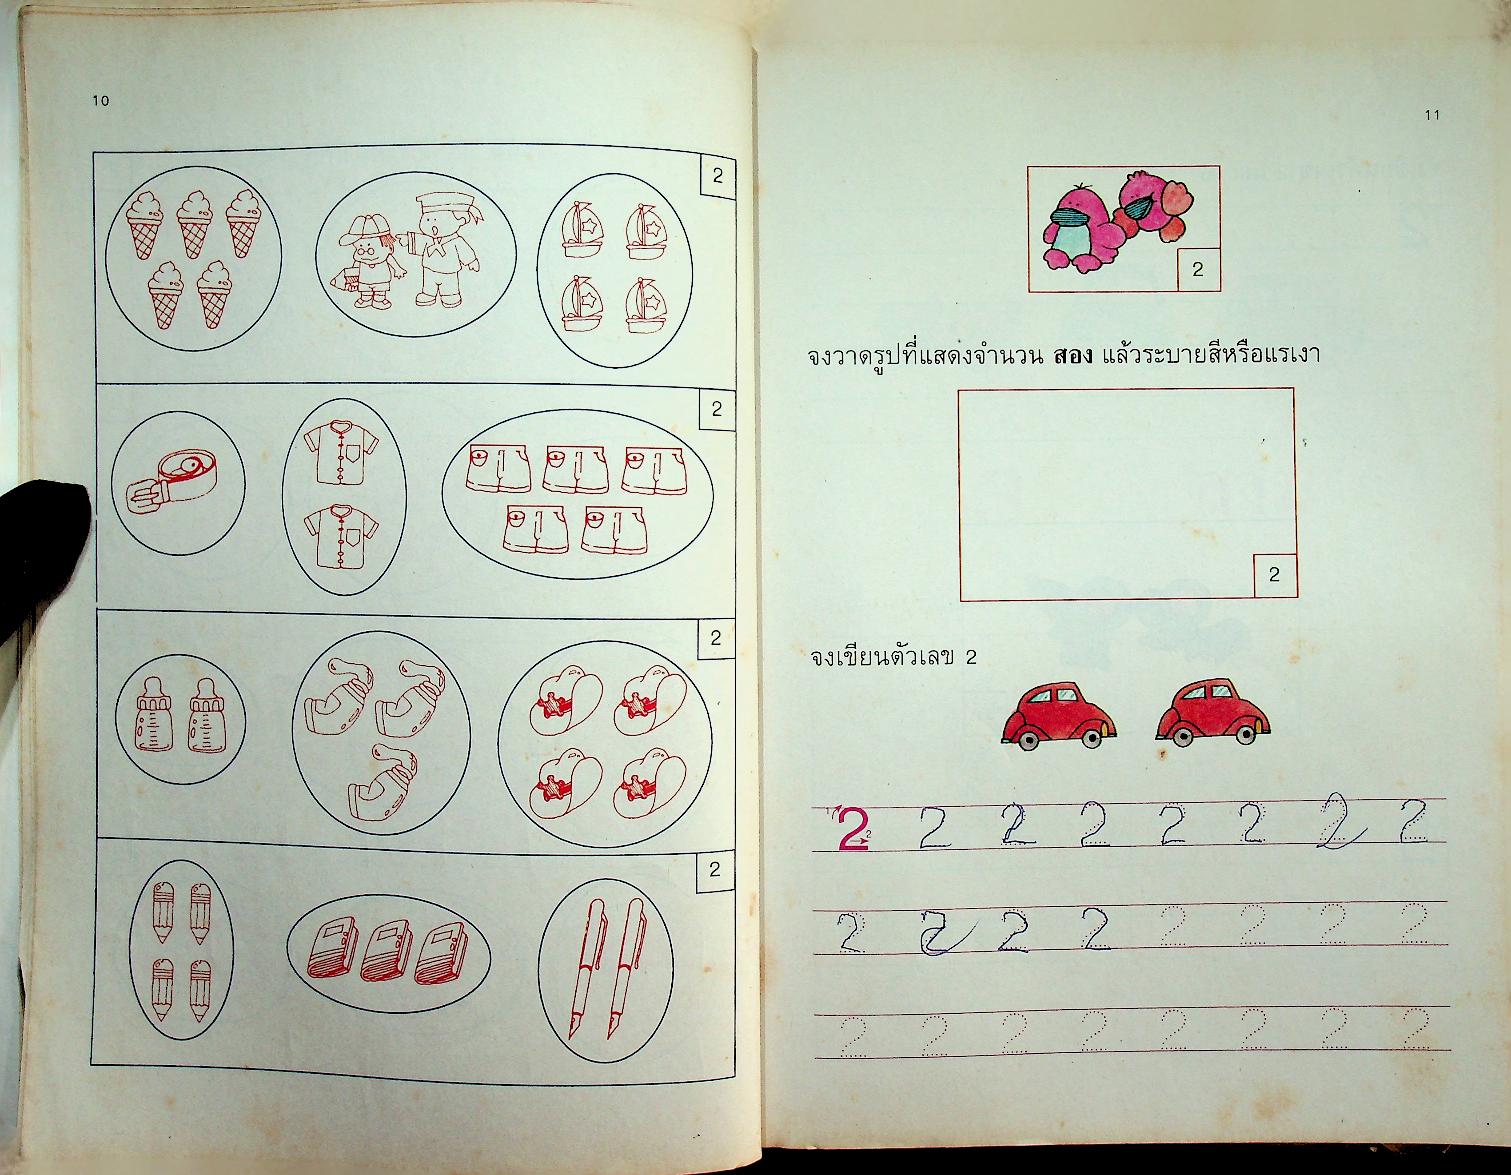 10
2
2
2
2
11
2
จงวาดรูปที่แสดงจำนวน สอง แล้วระบายสีหรือแรเงา
2
จงเขียนตัวเลข 2
2 2 2 2 2 2 2 2
2 2 2 2 2 2 2 2
2 2 2 2 2 2 2 2